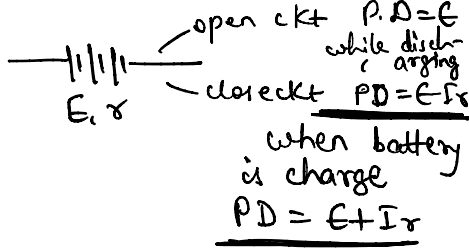 open ckt P.D=E
while disch-
arging
close ckt PD=E-Ir
E, r
when battery
is charge
PD = E+Ir